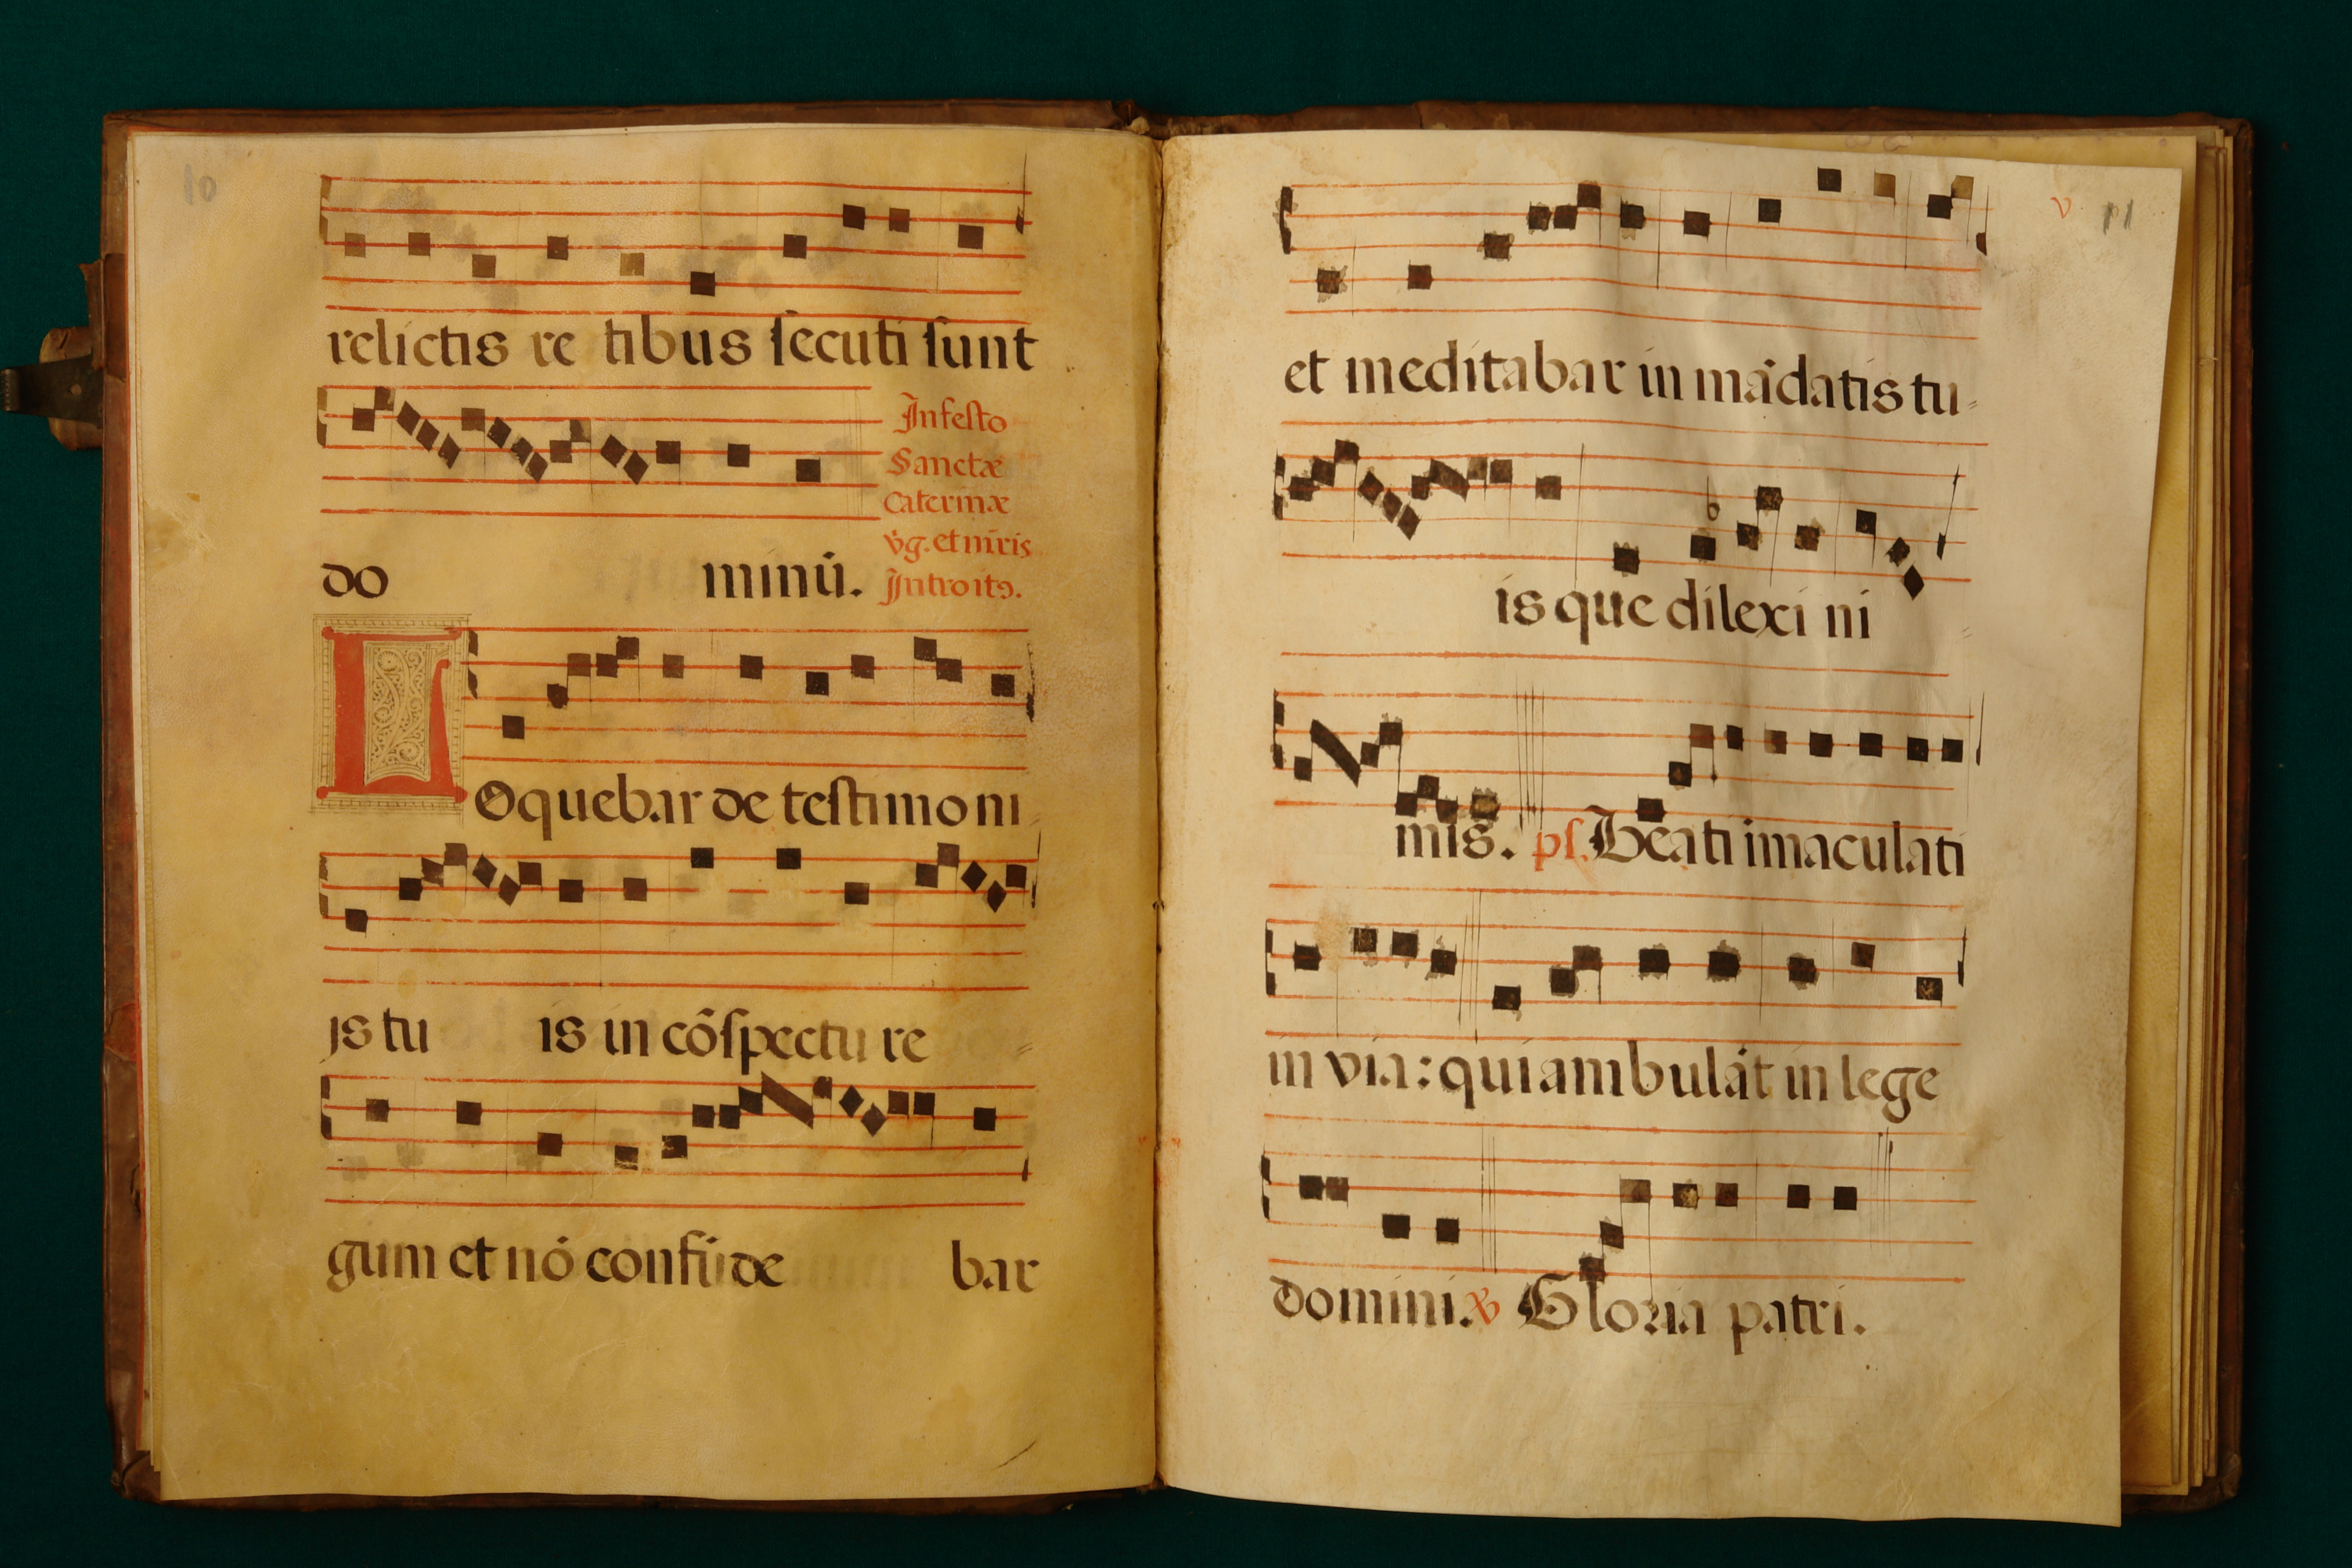 10
relictis re tibus ſecuti ſunt
In feſto
Sanctæ
Caterinæ
v̄g. et m̄ris
Introitꝯ.
do minū.
LOquebar de teſtimo ni
js tu is in cōſpectu re
gum et nō confūde bar
v 11
et meditabar in mādatis tu
is que dilexi ni
mis. pſ. Beati imaculati
in via: qui ambulāt in lege
domini. ℣ Gloria patri.